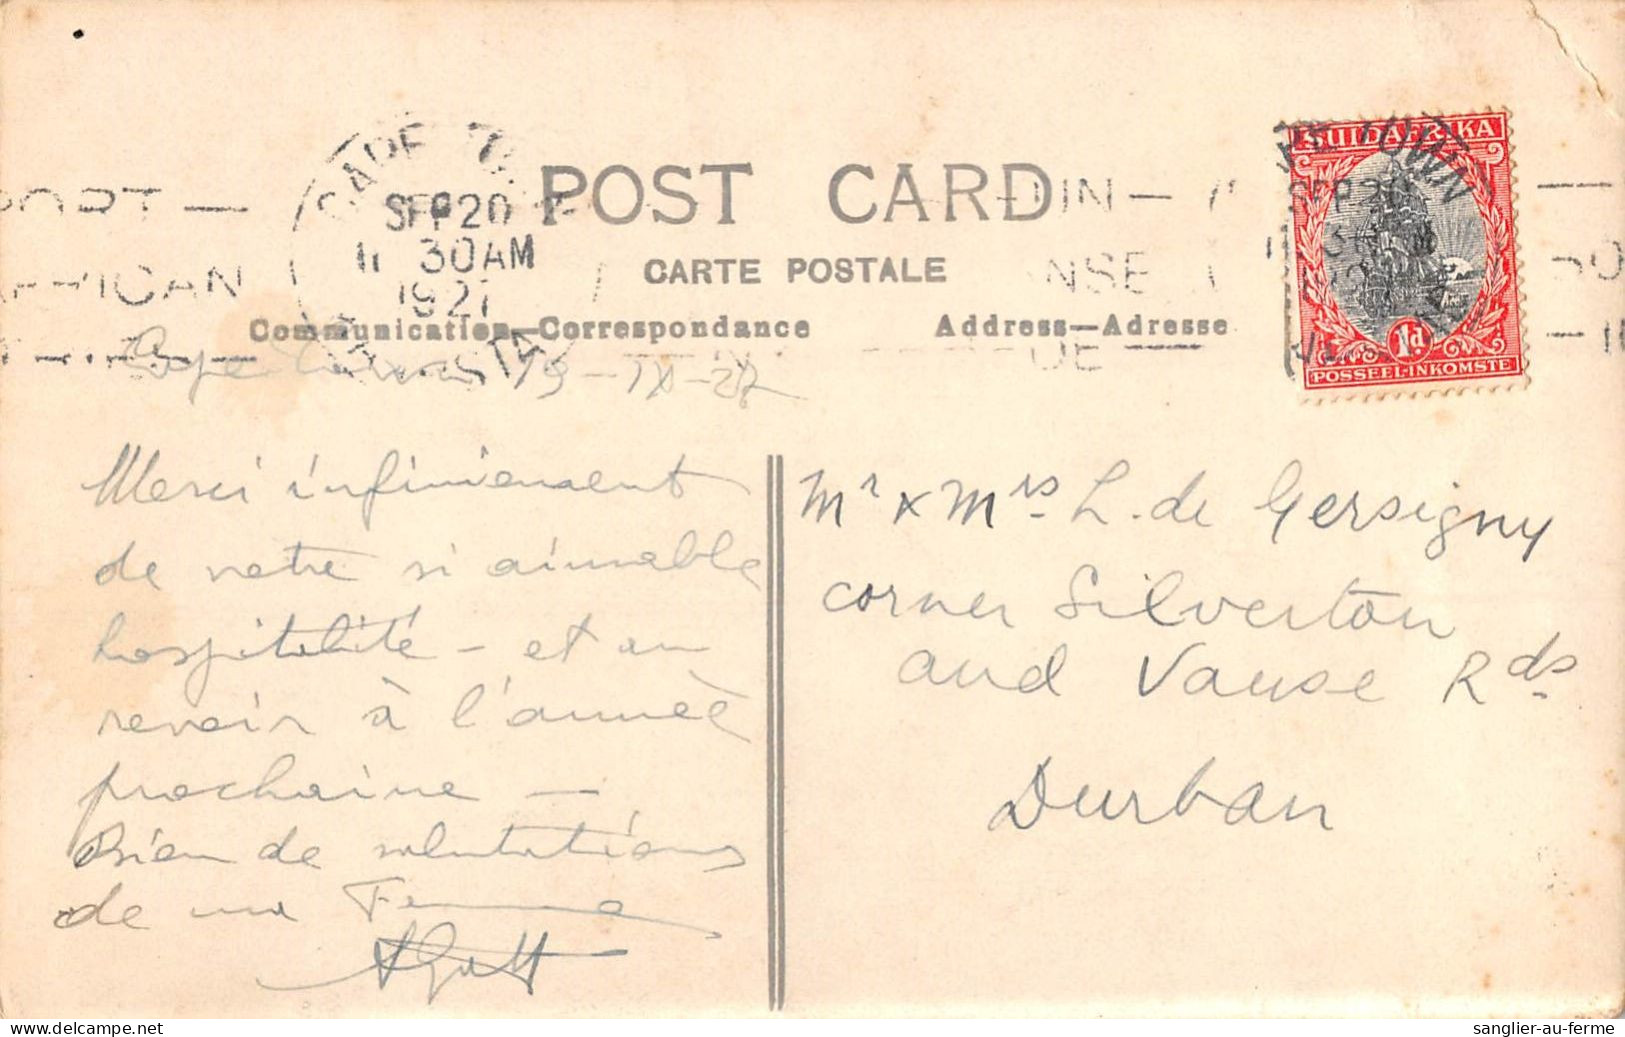 POST CARD
CARTE POSTALE
Communication—Correspondance
Address—Adresse
CAPE TOWN
SEP 20
11 30AM
1927
SUIDAFRIKA
1d
POSSEEL-INKOMSTE
Capetown 19-IX-27
Merci infiniement
de votre si aimable
hospitalité - et au
revoir à l'année
prochaine -
Bien de salutations
de ma Femme
Mr x Mrs L. de Gersigny
corner Silverton
and Vause Rds
Durban
sanglier-au-ferme
www.delcampe.net